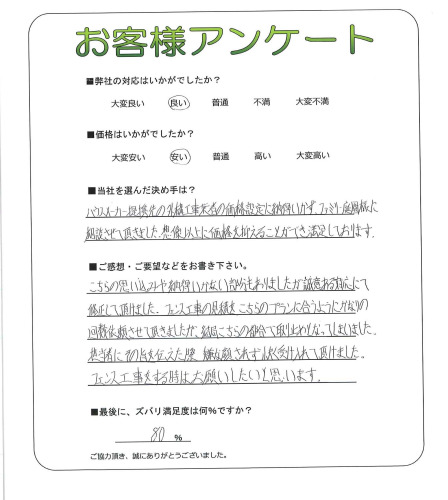 お客様アンケート
■弊社の対応はいかがでしたか？
大変良い 良い 普通 不満 大変不満
■価格はいかがでしたか？
大変安い 安い 普通 高い 大変高い
■当社を選んだ決め手は？
ハウスメーカー提携先の外構工事業者の価格設定に納得いかず、ファミリー庭園様に
相談させて頂きました。想像以上に価格を抑えることができ満足しております。
■ご感想・ご要望などをお書き下さい。
こちらの思い込みや納得いかない部分もありましたが誠意ある対応にて
修正して頂けました。フェンス工事の見積をこちらのプランに合うようにかなりの
回数依頼させて頂きましたが、結局こちらの都合で取り止めとなってしまいました。
担当者にその旨を伝えた際、嫌な顔されず快く受け入れて頂けました。
フェンス工事をする時はお願いしたいと思います。
■最後に、ズバリ満足度は何%ですか？
80 %
ご協力頂き、誠にありがとうございました。